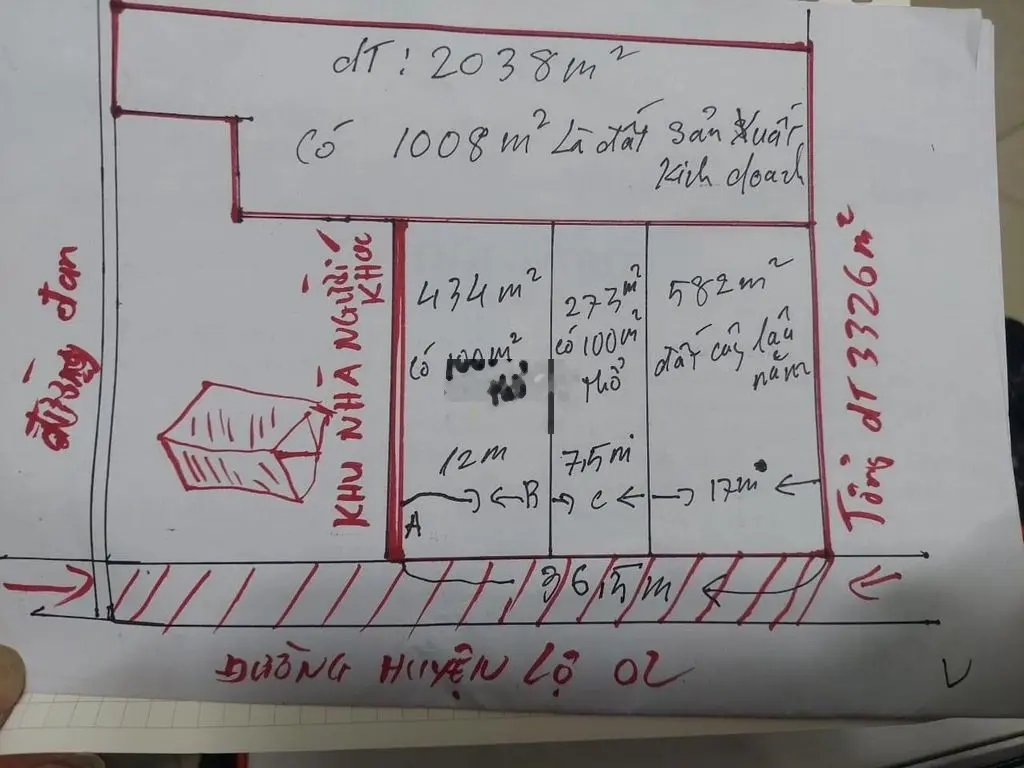 dT: 2038m²
Có 1008m² Là đất sản xuất,
Kinh doach
đường đan
KHU NHÀ NGƯỜI
KHÁC
434m²
có 100m²
thổ
12m
A
B
273m²
có 100m²
thổ
7,5m
C
582m²
đất cây lâu
năm
17m
Tổng dT 3326m²
36,5m
ĐƯỜNG HUYỆN LỘ 02
V